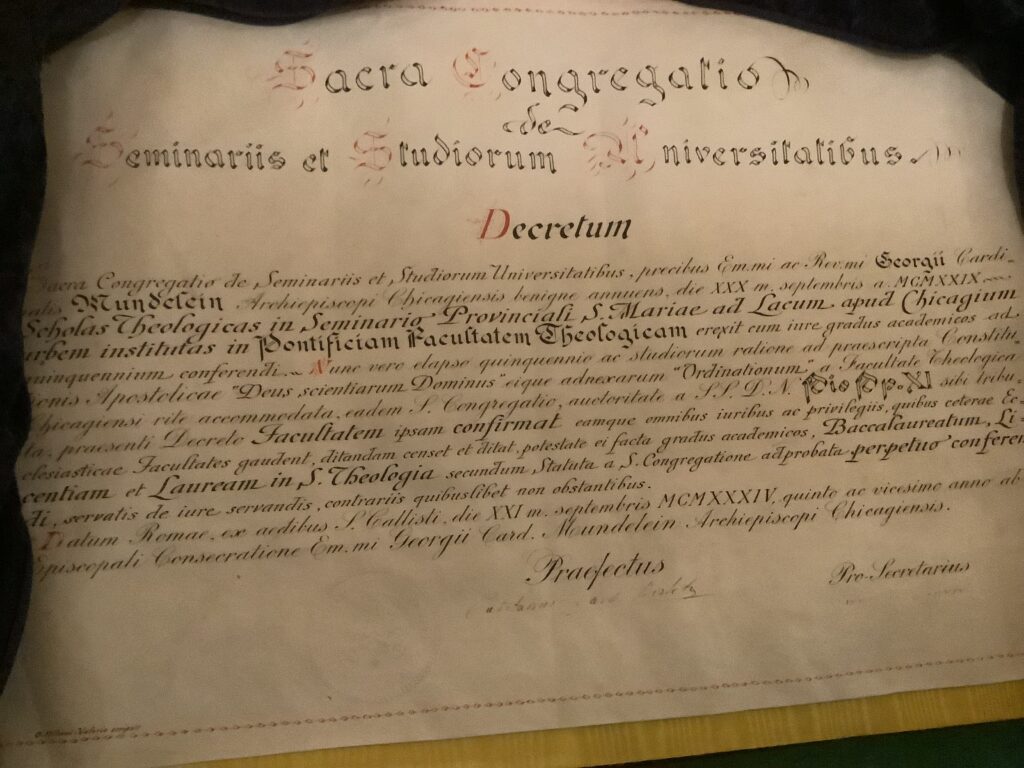 Sacra Congregatio
de
Seminariis et Studiorum Universitatibus.
Decretum
Sacra Congregatio de Seminariis et Studiorum Universitatibus, precibus Em.mi ac Rev.mi Georgii Cardi-
nalis Mundelein Archiepiscopi Chicagiensis benigne annuens, die XXX m. septembris a. MCMXXIX
Scholas Theologicas in Seminario Provinciali S. Mariae ad Lacum apud Chicagium
urbem institutas in Pontificiam Facultatem Theologicam erexit cum iure gradus academicos ad
quinquennium conferendi. Nunc vero elapso quinquennio ac studiorum ratione ad praescripta Constitu
tionis Apostolicae "Deus scientiarum Dominus" eique adnexarum "Ordinationum" a Facultate Theologica
Chicagiensi rite accommodata, eadem S. Congregatio, auctoritate a SS. D. N. Pio Pp. XI sibi tribu-
ta, praesenti Decreto Facultatem ipsam confirmat eamque omnibus iuribus ac privilegiis, quibus ceterae Ec-
clesiasticae Facultates gaudent, ditandam censet et ditat, potestate ei facta gradus academicos, Baccalaureatum, Li-
centiam et Lauream in S. Theologia secundum Statuta a S. Congregatione adprobata perpetuo conferen
di, servatis de iure servandis, contrariis quibuslibet non obstantibus.
Datum Romae, ex aedibus S. Callisti, die XXI m. septembris MCMXXXIV, quinto ac vicesimo anno ab
Episcopali Consecratione Em.mi Georgii Card. Mundelein Archiepiscopi Chicagiensis.
Praefectus
Pro-Secretarius